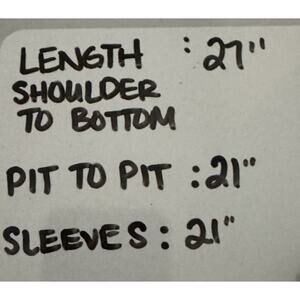 LENGTH : 27"
SHOULDER
TO BOTTOM
PIT TO PIT : 21"
SLEEVES : 21"